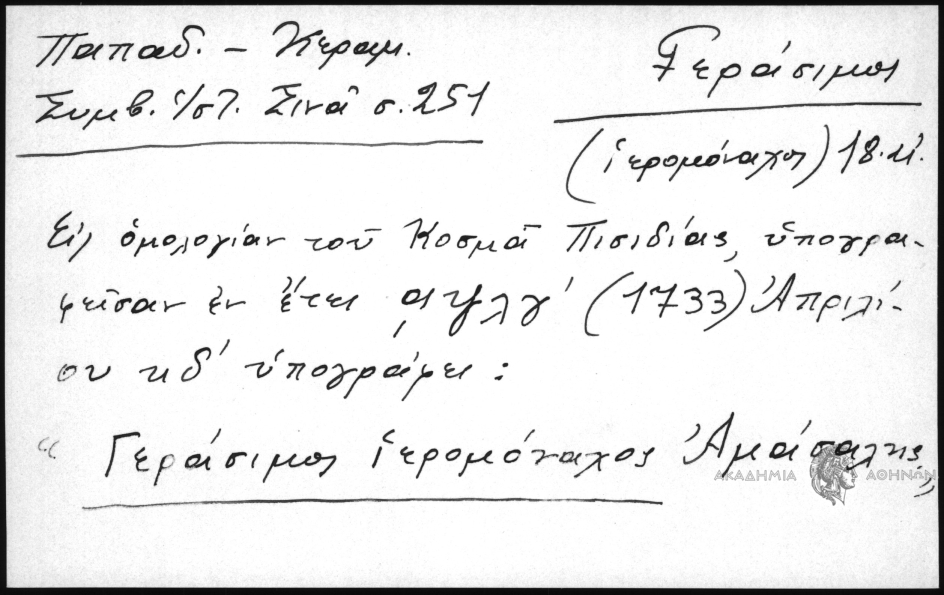 Παπαδ. – Κεραμ.
Συμβ. Ἱστ. Σινᾶ σ. 251
Γεράσιμος
(ἱερομόναχος) 18. αἰ.
Εἰς ὁμολογίαν τοῦ Κοσμᾶ Πισιδίας, ὑπογρα-
φεῖσαν ἐν ἔτει ͵αψλγʹ (1733) Ἀπριλί-
ου κδʹ ὑπογράφει :
“ Γεράσιμος ἱερομόναχος
ΑΚΑΔΗΜΙΑ ΑΘΗΝΩΝ